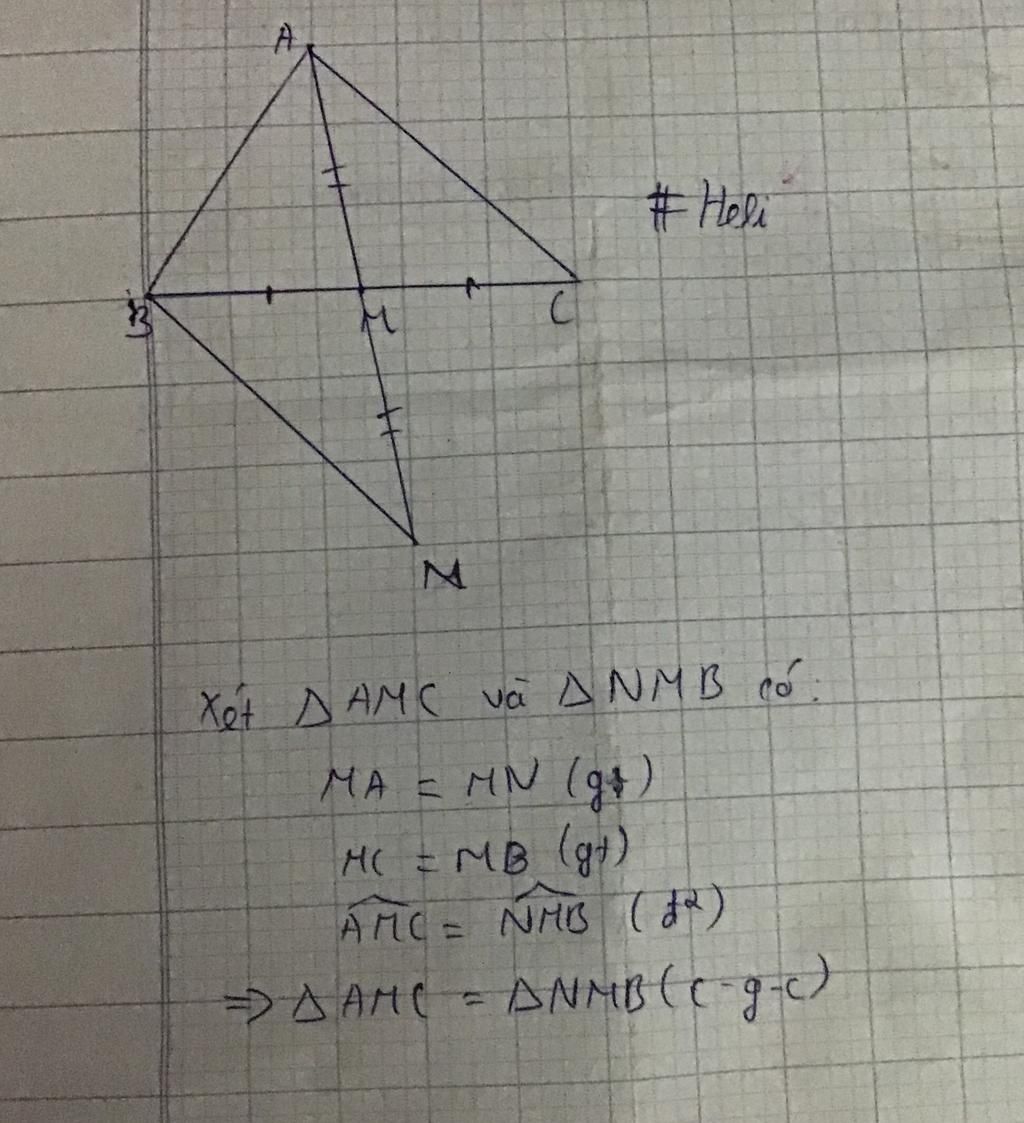 A
# Heli
B M C
N
Xét Δ AMC và Δ NMB có:
MA = MN (gt)
MC = MB (gt)
AMC = NMB (đ²)
=> Δ AMC = Δ NMB (c-g-c)